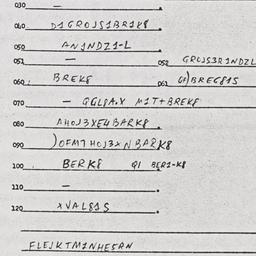 030 —
040 D1GROJS1BR1K8
050 ANJNDZ1-L
051 — 052 GROJS3R1NDZL
060. BREK8 061 G)BREC81S
070 — GGL8A.X M1T+BREK8
080 AHOJ3XE4BARK8
090 )OFM7HOJ3XNBARK8
100 BERK8 91 BER1-K8
110 —
120 XVAL81S
FLEJKTM1NHE5AN